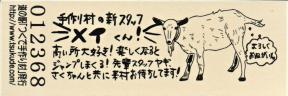 道の駅つくで手作り村発行
https://www.tsukude.com/
012368
手作り村の新スタッフ
メイくん!
高い所大好き!楽しくなると
ジャンプしまくる!先輩スタッフヤギ
さくちゃんと共に手村でお待ちしてます!
よろしく
おねがいします